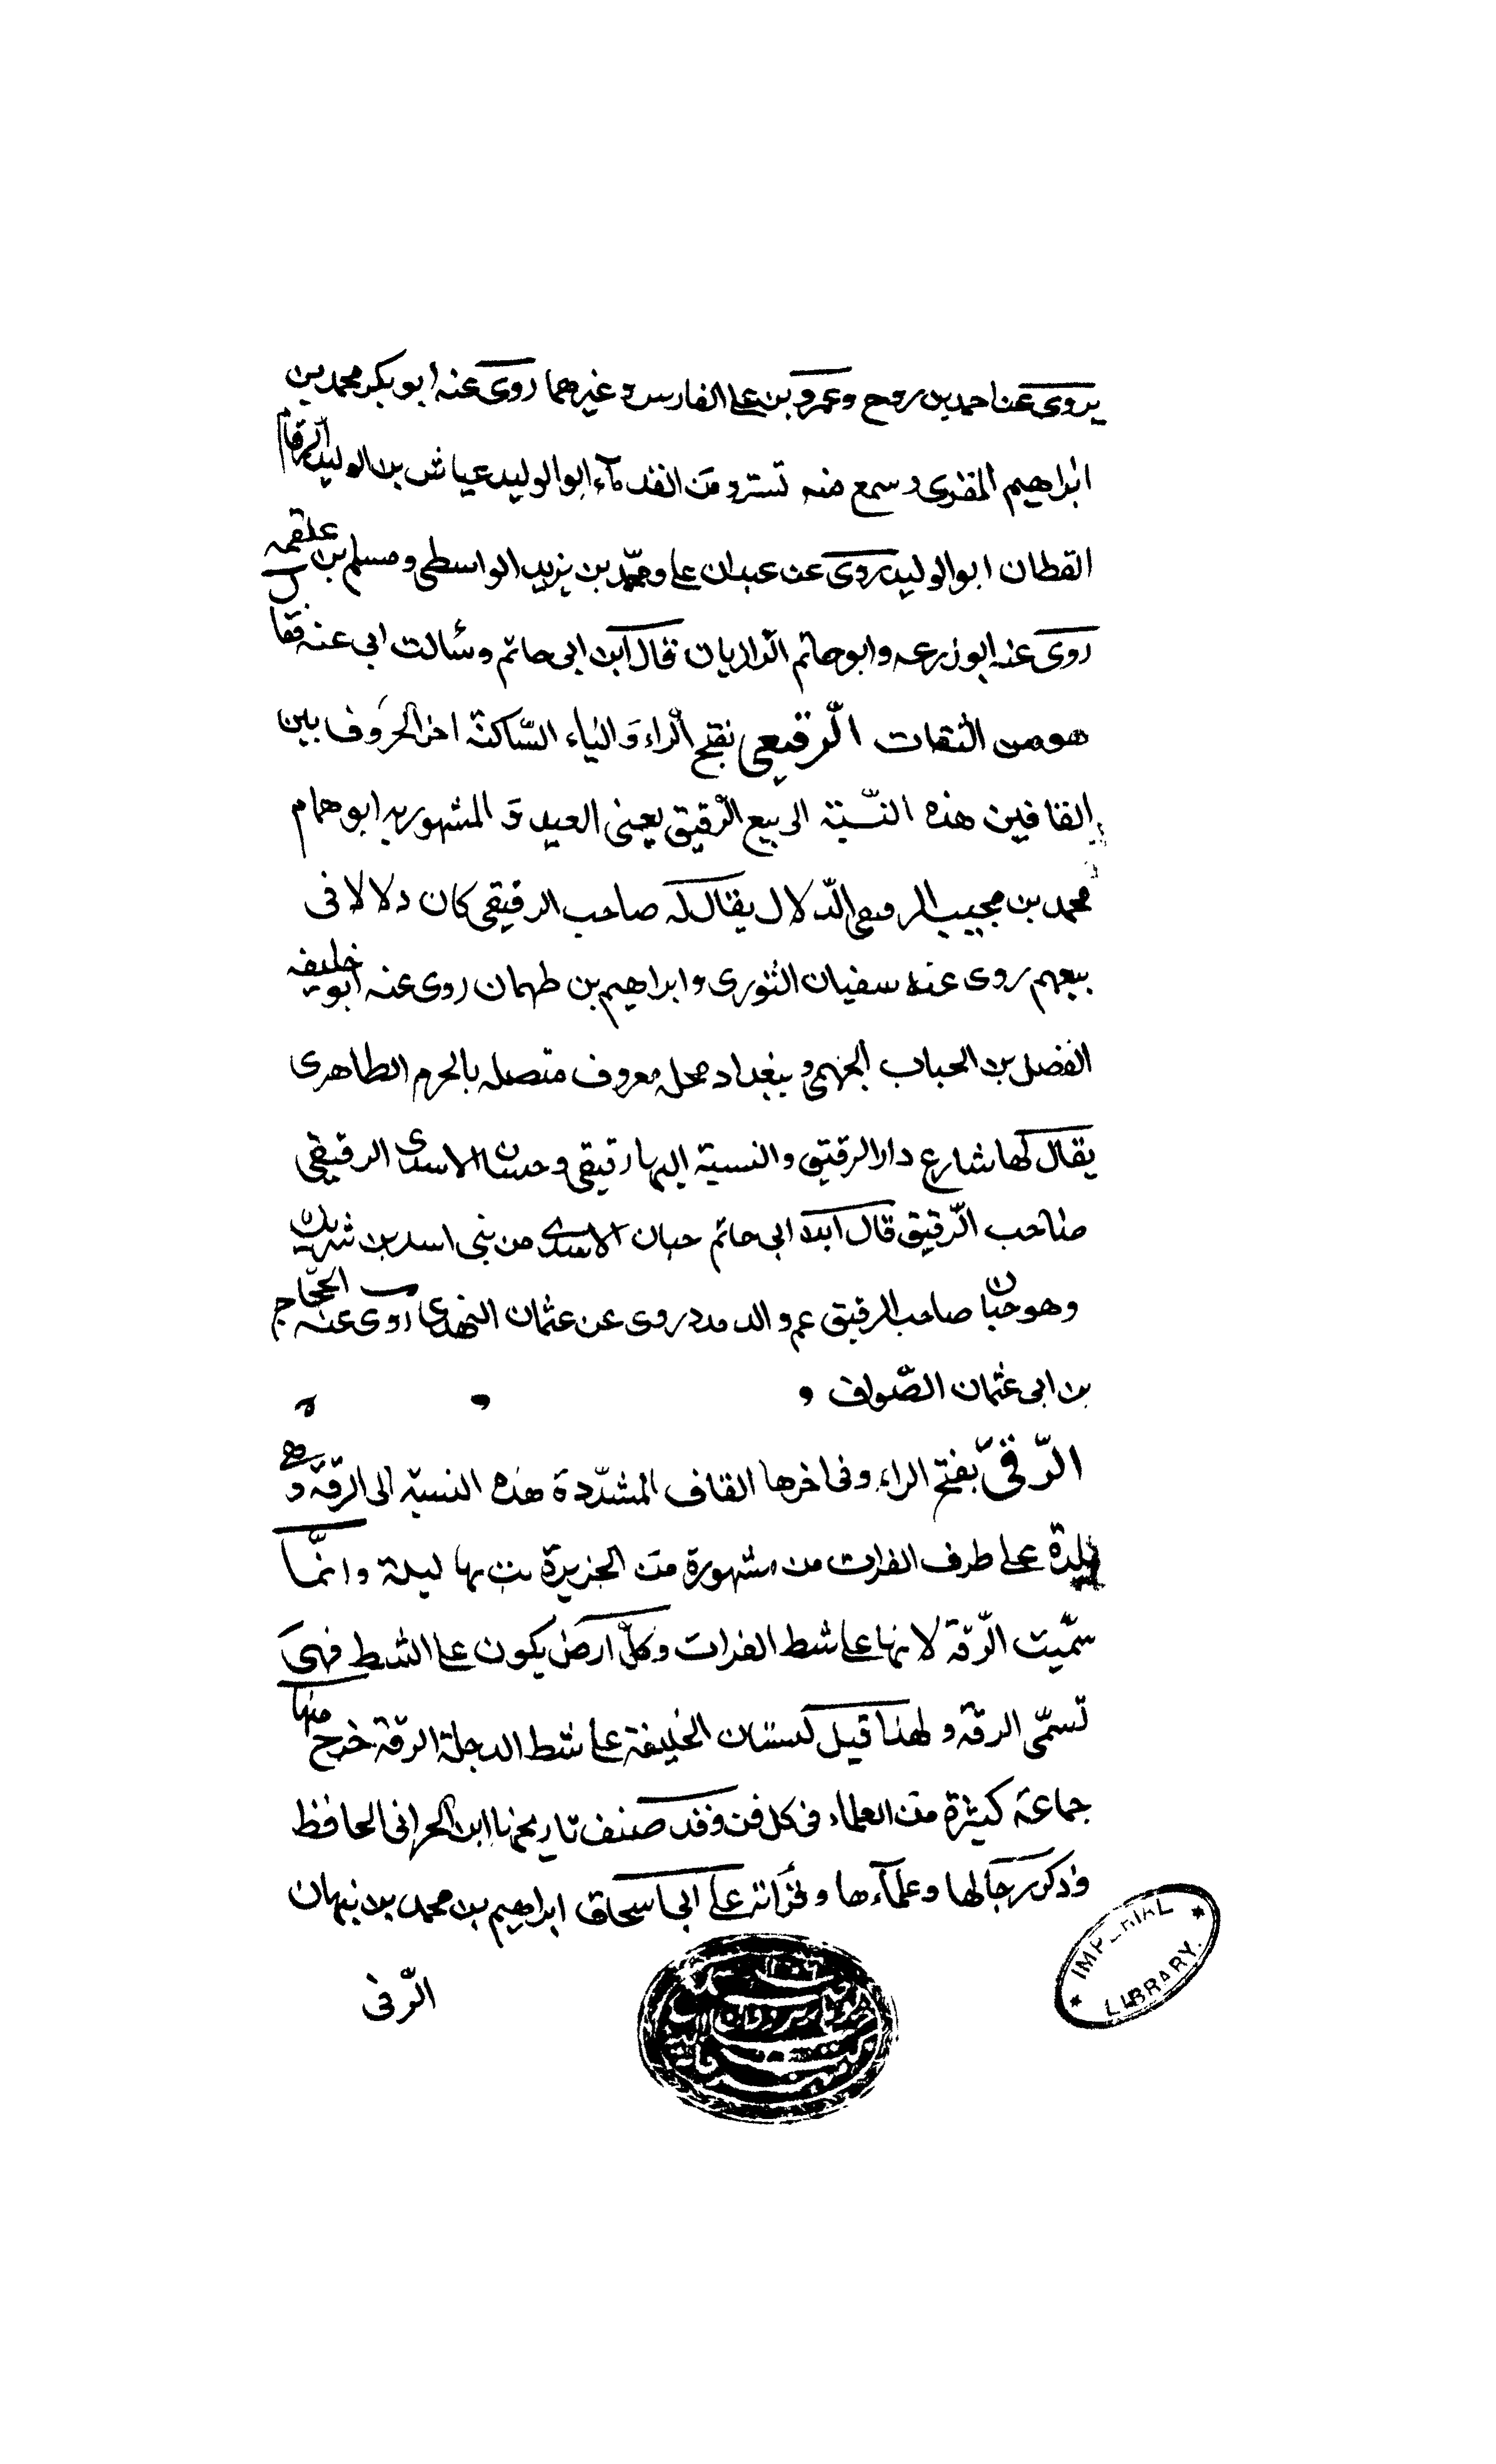 يروى عن احمد بن روح وعمرو بن على الفارس وغيرهما روى عنه ابو بكر محمد بن
ابراهيم المقرى وسمع منه تستر ومن القدماء ابو الوليد عياش بن الوليد الرقام
القطان ابو الوليد يروى عن عبدان على ومحمد بن يزيد الواسطى ومسلم بن علقمه
روى عنه ابو زرعه وابو حاتم الرازيان قال ابن ابى حاتم وسألت ابى عنه فقال
هو من الثقات الرقيقى بفتح الراء والياء الساكنة اخر الحروف بين
القافين هذه النسبة الى بيع الرقيق يعنى العبيد و المشهور به ابو همام
محمد بن مجيب الرقيقى الدلال يقال له صاحب الرقيقى كان دلالا فى
بيعهم روى عنه سفيان الثورى وابراهيم بن طهمان روى عنه ابو خليفه
الفضل بن الحباب الجمهى وببغداد محله معروف متصله بالحرم الطاهرى
يقال لها شارع دار الرقيق والنسبة اليها رقيقى وحنان الاسدى الرقيقى
صاحب الرقيق قال ابن ابى حاتم حبان الاسدى من بنى اسد بن شريك
وهو حنان صاحب الرقيق عم والد مدد روى عن عثمان النهدى روى عنه الحجاج
بن ابى عثمان الصواف
الرقى بفتح الراء وفى اخرها القاف المشددة هذه النسبة الى الرقة وهى
بلدة على طرف الفرات من مشهورة من الجزيرة بت بها ليلة وانما
سميت الرقة لانها على شط الفرات وكل ارض يكون على الشط فهى
تسمى الرقة ولهذا قيل لبستان الخليفة على شط الدجلة الرقة خرج منها
جماعة كثيرة من العلماء فى كل فن وقد صنف تاريخها ابن الحرانى الحافظ
وذكر رجالها وعلماءها وقرأته على ابى اسحاق ابراهيم بن محمد بن نبهان
الرقى
IMPERIAL LIBRARY